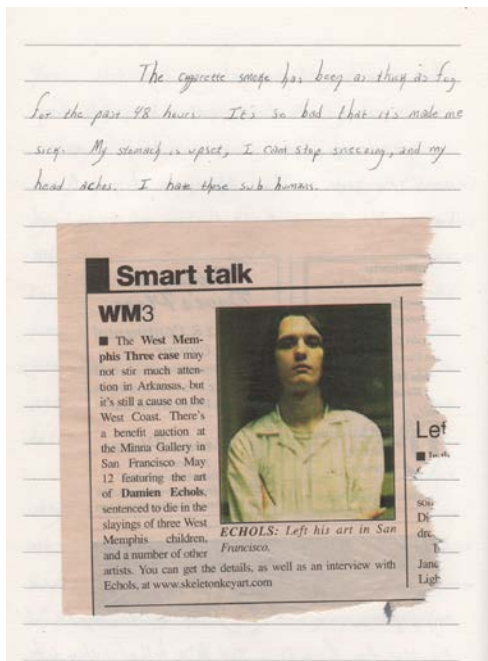 The cigarette smoke has been as thick as fog
for the past 48 hours. It's so bad that it's made me
sick. My stomach is upset, I cant stop sneezing, and my
head aches. I hate these sub humans.
Smart talk
WM3
■ The West Mem-
phis Three case may
not stir much atten-
tion in Arkansas, but
it's still a cause on the
West Coast. There's
a benefit auction at
the Minna Gallery in
San Francisco May
12 featuring the art
of Damien Echols,
sentenced to die in the
slayings of three West
Memphis children,
and a number of other
artists. You can get the details, as well as an interview with
Echols, at www.skeletonkeyart.com
ECHOLS: Left his art in San
Francisco.
Lef
■
sou
Di
dre
Jane
Ligh